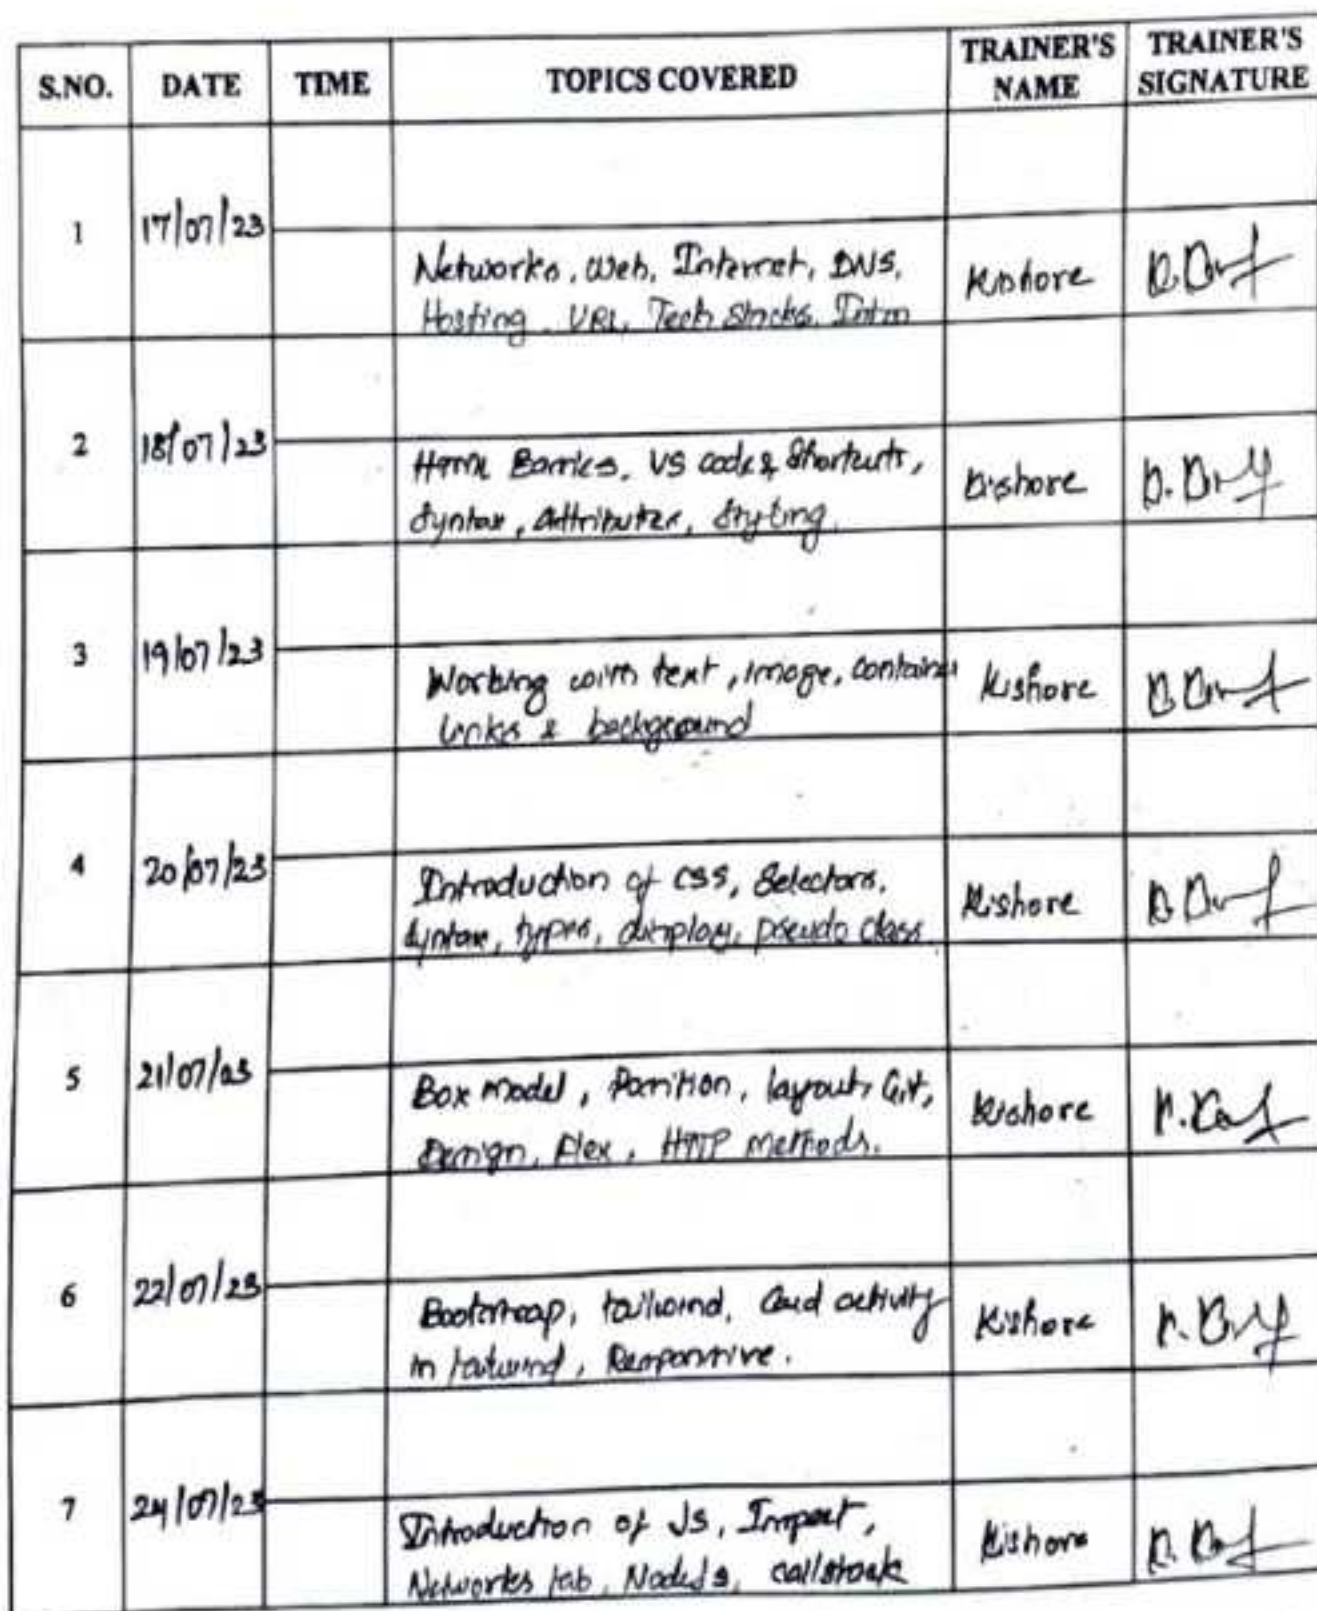 S.NO. DATE TIME TOPICS COVERED TRAINER'S NAME TRAINER'S SIGNATURE
1 17/07/23
Networks, Web, Internet, DNS, Kishore
Hosting, URL, Tech Stacks, Intro
2 18/07/23
HTML Basics, VS code & Shortcuts, Kishore
Syntax, Attributes, Styling.
3 19/07/23
Working with text, image, container Kishore
links & background
4 20/07/23
Introduction of CSS, Selectors, Kishore
Syntax, types, display, pseudo class
5 21/07/23
Box model, Position, layout, Git, Kishore
Design, Flex, HTTP methods.
6 22/07/23
Bootstrap, tailwind, Card activity Kishore
in tailwind, Responsive.
7 24/07/23
Introduction of JS, Kishore
Networks tab, NodeJs, callstack